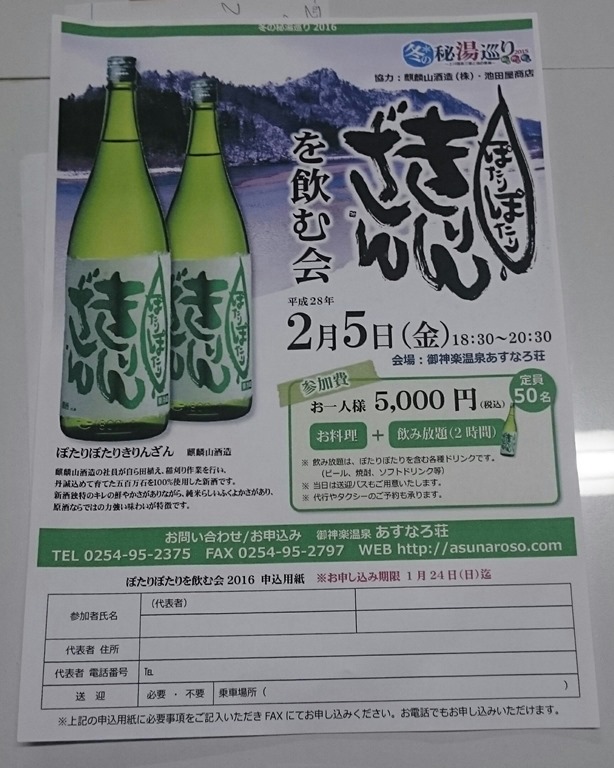 冬の秘湯巡り2016
冬の秘湯巡り2015
協力：麒麟山酒造(株)・池田屋商店
ぽたりぽたり
きりん
ざん
を飲む会
ぽたりぽたり
きりん
ざん
平成28年
2月5日(金)18:30～20:30
会場：御神楽温泉あすなろ荘
参加費
定員
50名
お一人様 5,000円(税込)
お料理 + 飲み放題(2時間)
※ 飲み放題は、ぽたりぽたりを含む各種ドリンクです。
（ビール、焼酎、ソフトドリンク等）
※ 当日は送迎バスもご用意いたします。
※ 代行やタクシーのご予約も承ります。
ぽたりぽたりきりんざん 麒麟山酒造
麒麟山酒造の社員が自ら田植え、稲刈り作業を行い、
丹誠込めて育てた五百万石を100%使用した新酒です。
新酒独特のキレの鮮やかさがありながら、純米らしいふくよかさがあり、
原酒ならではの力強い味わいが特徴です。
お問い合わせ/お申込み 御神楽温泉 あすなろ荘
TEL 0254-95-2375 FAX 0254-95-2797 WEB http://asunaroso.com
ぽたりぽたりを飲む会2016 申込用紙 ※お申し込み期限 1月24日(日)迄
参加者氏名 （代表者）
代表者 住所
代表者 電話番号 ℡
送 迎 必要 ・ 不要 乗車場所（ ）
※上記の申込用紙に必要事項をご記入いただきFAXにてお申し込みください。お電話でもお申し込みいただけます。